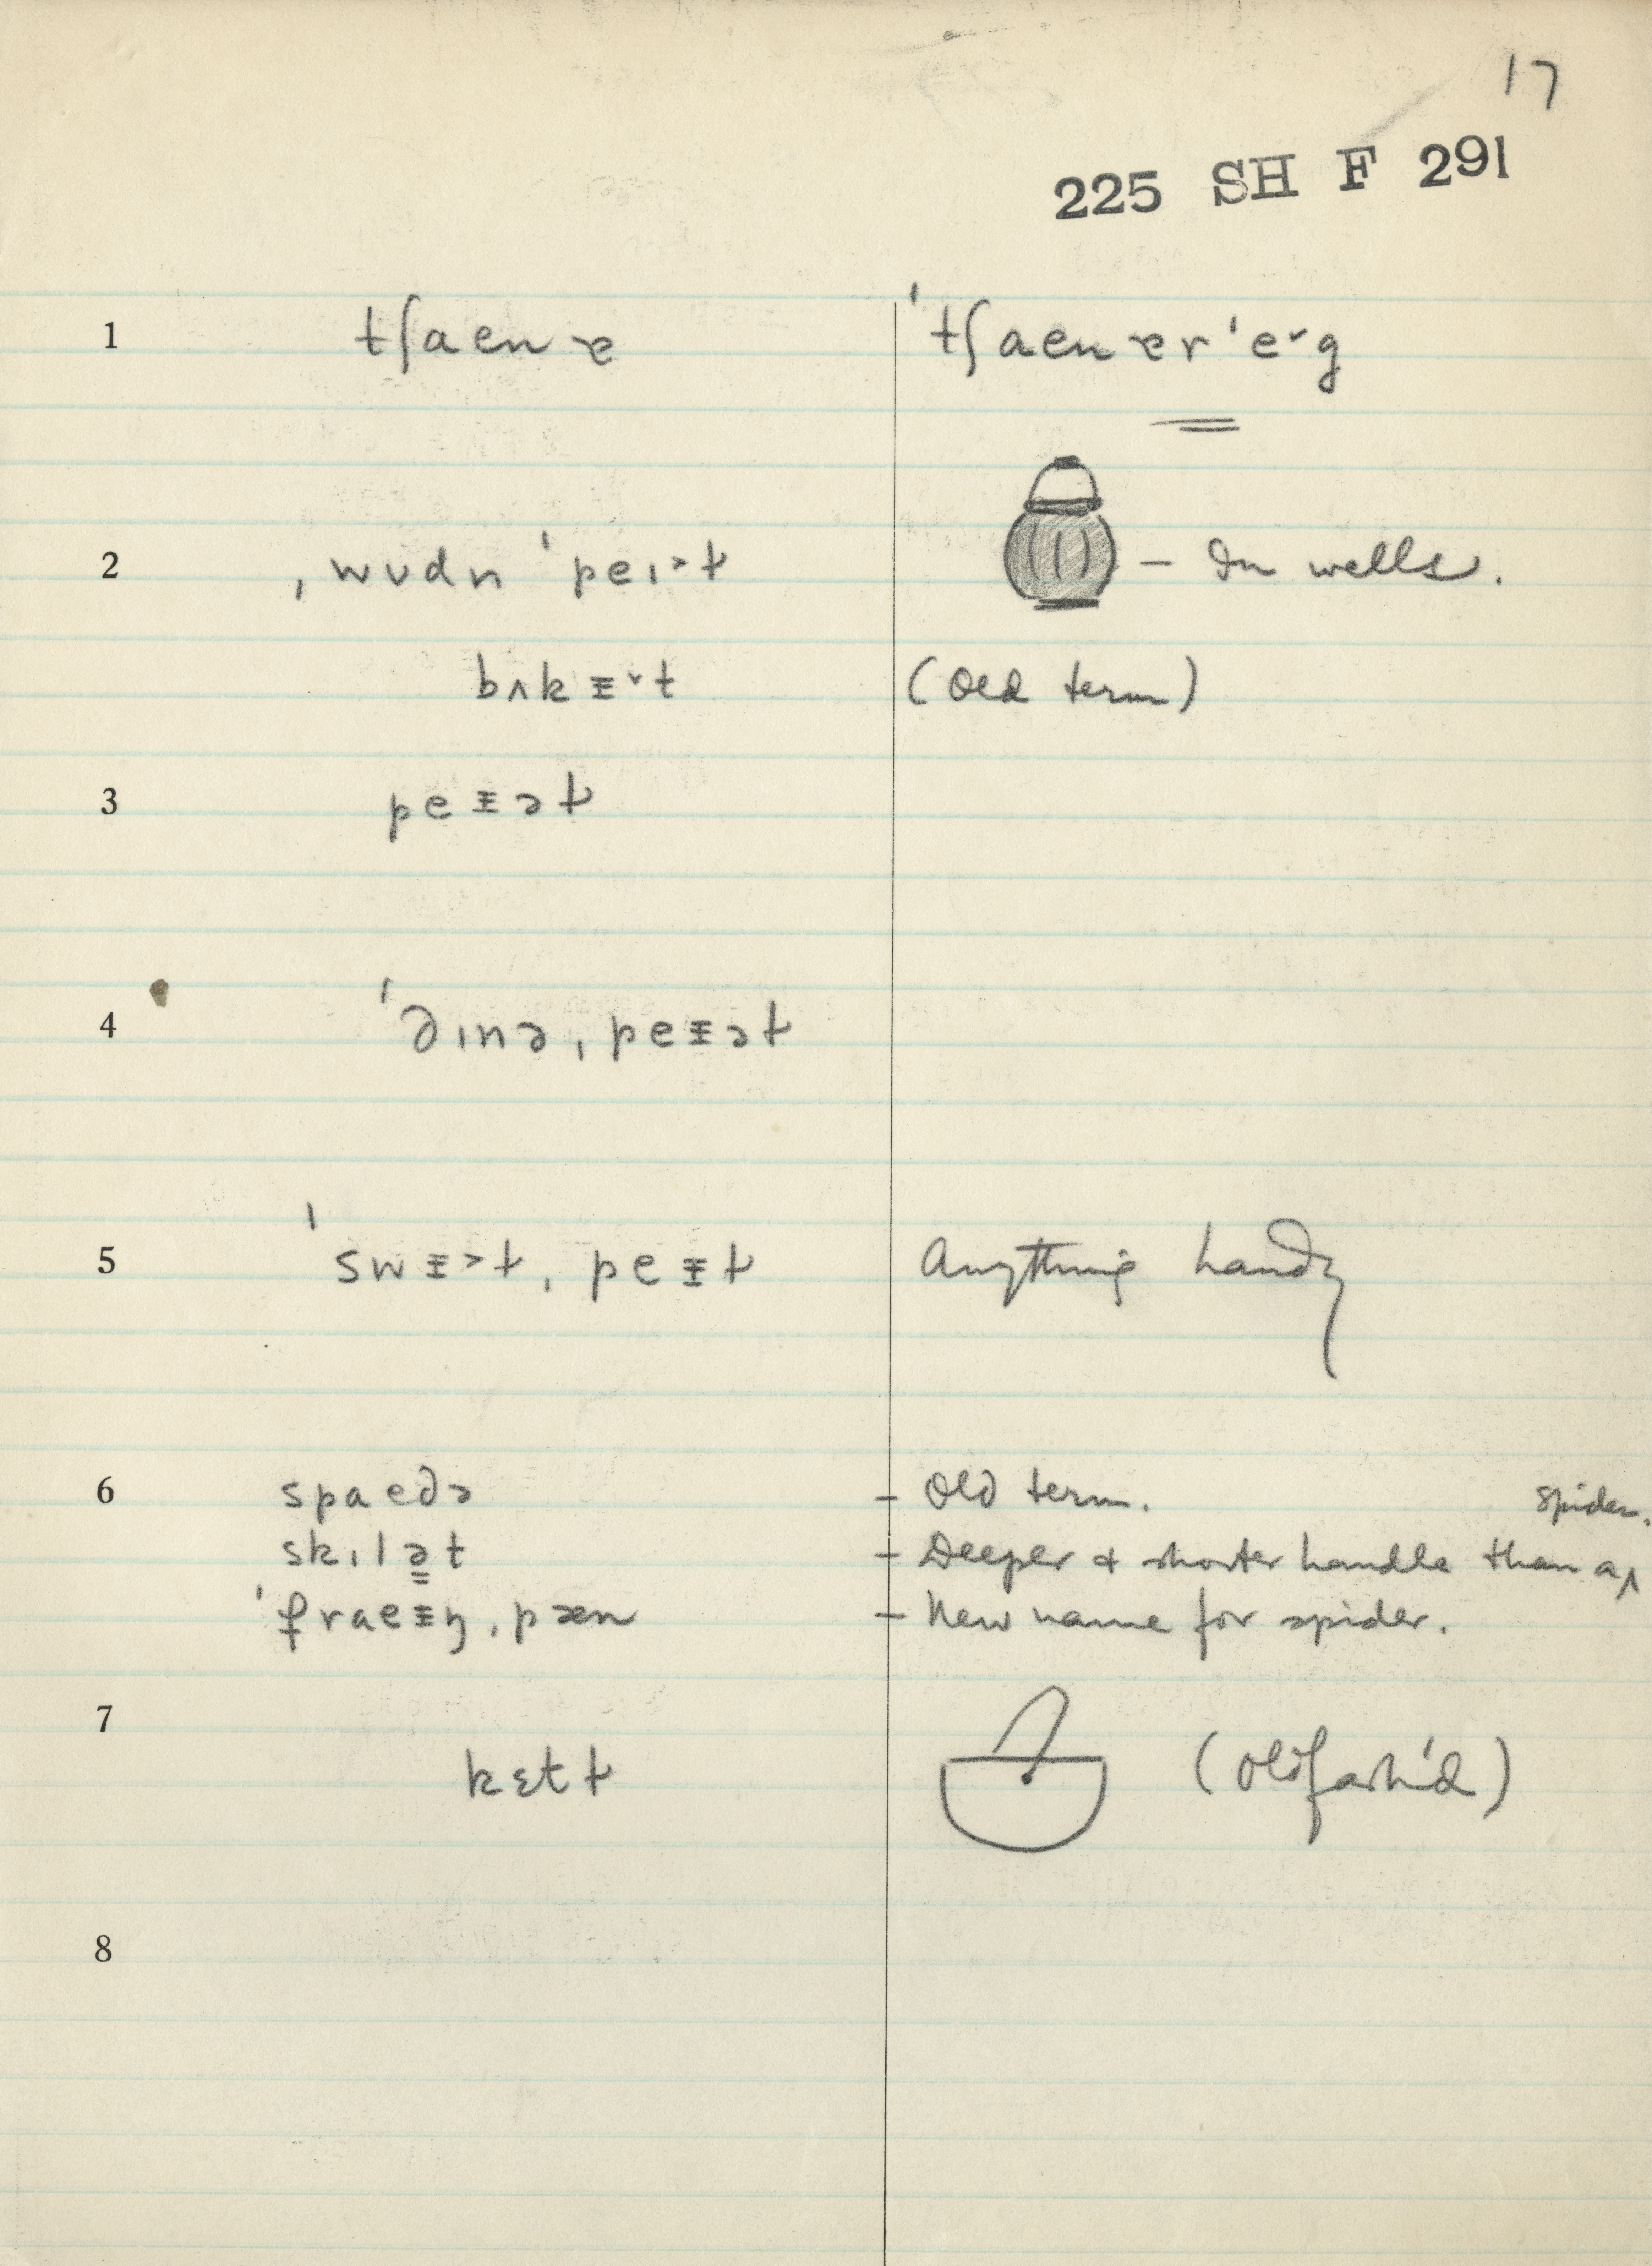 17
225 SH F 291
1 tʃaenɐ ˈtʃaenɐrˈe˅g
2 ˌwʊdn ˈpeɪ˃ɫ – In wells.
bʌkᵻ˅t (Old term)
3 peᵻəɫ
4 ˈdɪnə ˌpeᵻəɫ
5 ˈswᵻ˃ɫ ˌpeᵻɫ Anything handy
6 spaedə – Old term.
skɪlət – Deeper & shorter handle than a spider.
ˈfraeᵻŋ ˌpæn – New name for spider.
7 kɛtɫ (Oldfash'd)
8